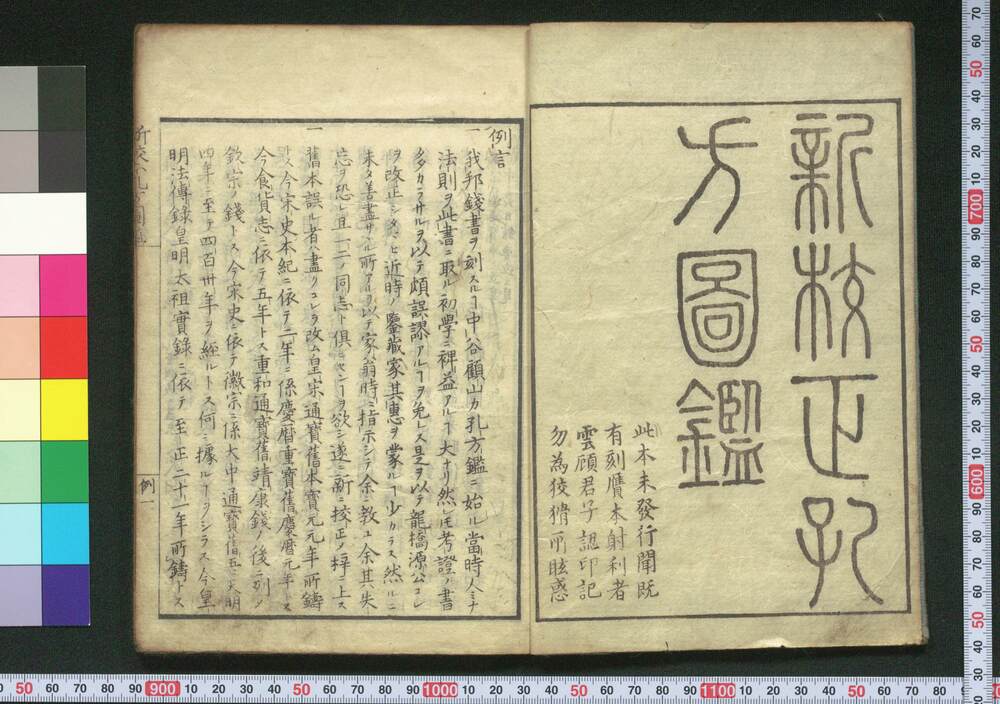 新校正孔
方圖鑑
此本未發行聞既
有刻贋本射利者
雲顧君子認印記
勿為狡猾所眩惑
例言
一我邦錢書ヲ刻スルヿ中谷顧山カ孔方鑑ニ始ル當時人ミナ
法則ヲ此書ニ取ル初學ニ裨益アルヿ大ナリ然𪜈考證ノ書
多カラサルヲ以テ頗誤謬アルヿヲ免レス是ヲ以テ龍橋源公コレ
ヲ改正シタマヒ近時ノ鑒藏家其惠ヲ蒙ルヿ少カラス然ルニ
未タ善盡サヽル所アルヲ以テ家翁時ニ指示シテ余ニ教ユ余其失
忘ヲ恐レ且一二ノ同志ト俱ニセンヿヲ欲シ遂ニ新ニ校正ノ梓ニ上ス
一舊本誤ル者ハ盡クコレヲ改ム皇宋通寳舊本寳元元年所鑄
今宋史本紀ニ依テ二年ニ係慶曆重寳舊慶曆元年トス
今食貨志ニ依テ五年トス重和通寳舊靖康錢ノ後ニ列ノ
欽宗ノ錢トス今宋史ニ依テ徽宗ニ係大中通寳舊大明
四年ニ至テ四百卅年ヲ經ルトス何ニ據ルヿヲシラス今皇
明法傳錄皇明太祖實錄ニ依テ至正二十一年所鑄トス
例一